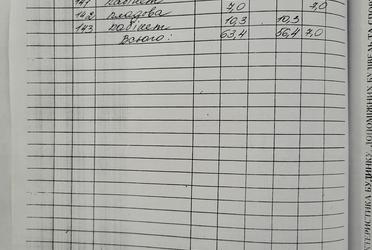 141 кабінет
142 кладова 7,0 7,0
143 кабінет 10,3 10,3
Всього: 63,4 56,4 7,0
ТЕРИСТИКА БУДИНКУ, ДОПОМІЖНИХ БУДІВЕЛЬ ТА СПОР